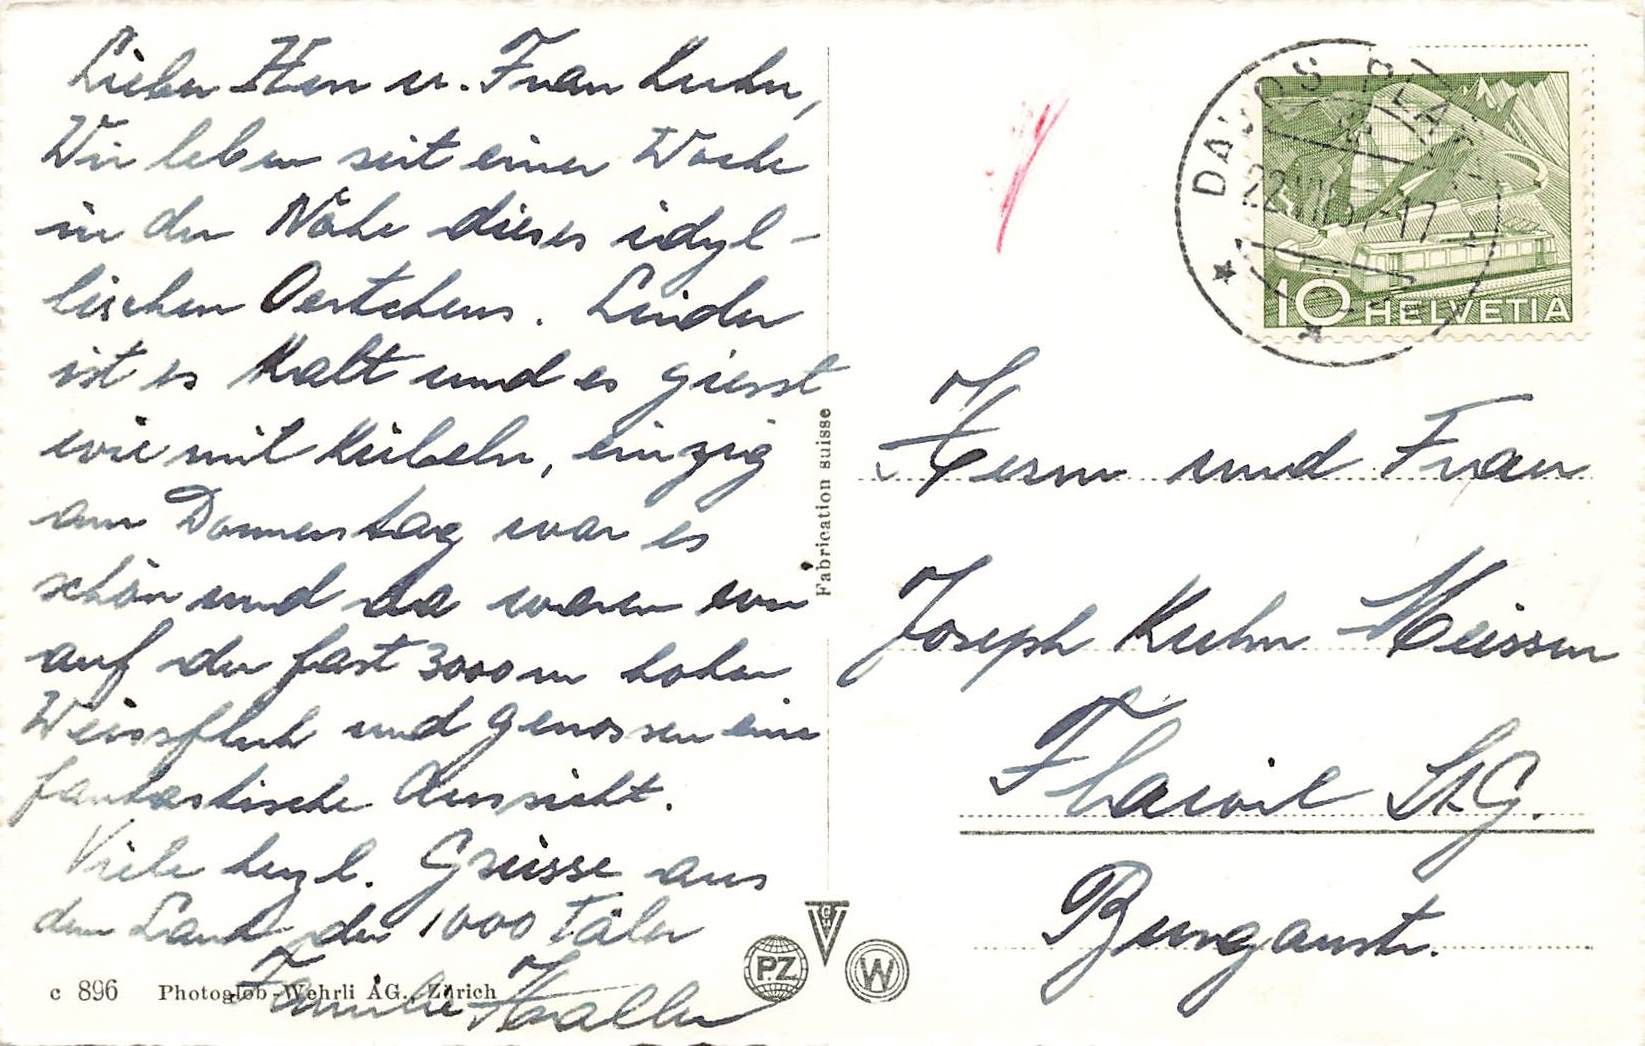 Lieber Herr u. Frau Kuhn,
Wir leben seit einer Woche
in der Nähe dieses idyl-
lischen Oertchens. Leider
ist es kalt und es giesst
wie mit Kübeln, einzig
am Donnerstag war es
schön und da waren wir
auf der fast 3000 m hohen
Weissfluh und genossen eine
fantastische Aussicht.
Viele herzl. Grüsse aus
dem Land der 1000 Täler
Familie Haller
c 896 Photoglob-Wehrli AG., Zürich
Fabrication suisse
PZ
W
DAVOS PLATZ
22.VII
-17
10 HELVETIA
Herrn und Frau
Joseph Kuhn Meissen
Flawil St. G.
Burgaustr.